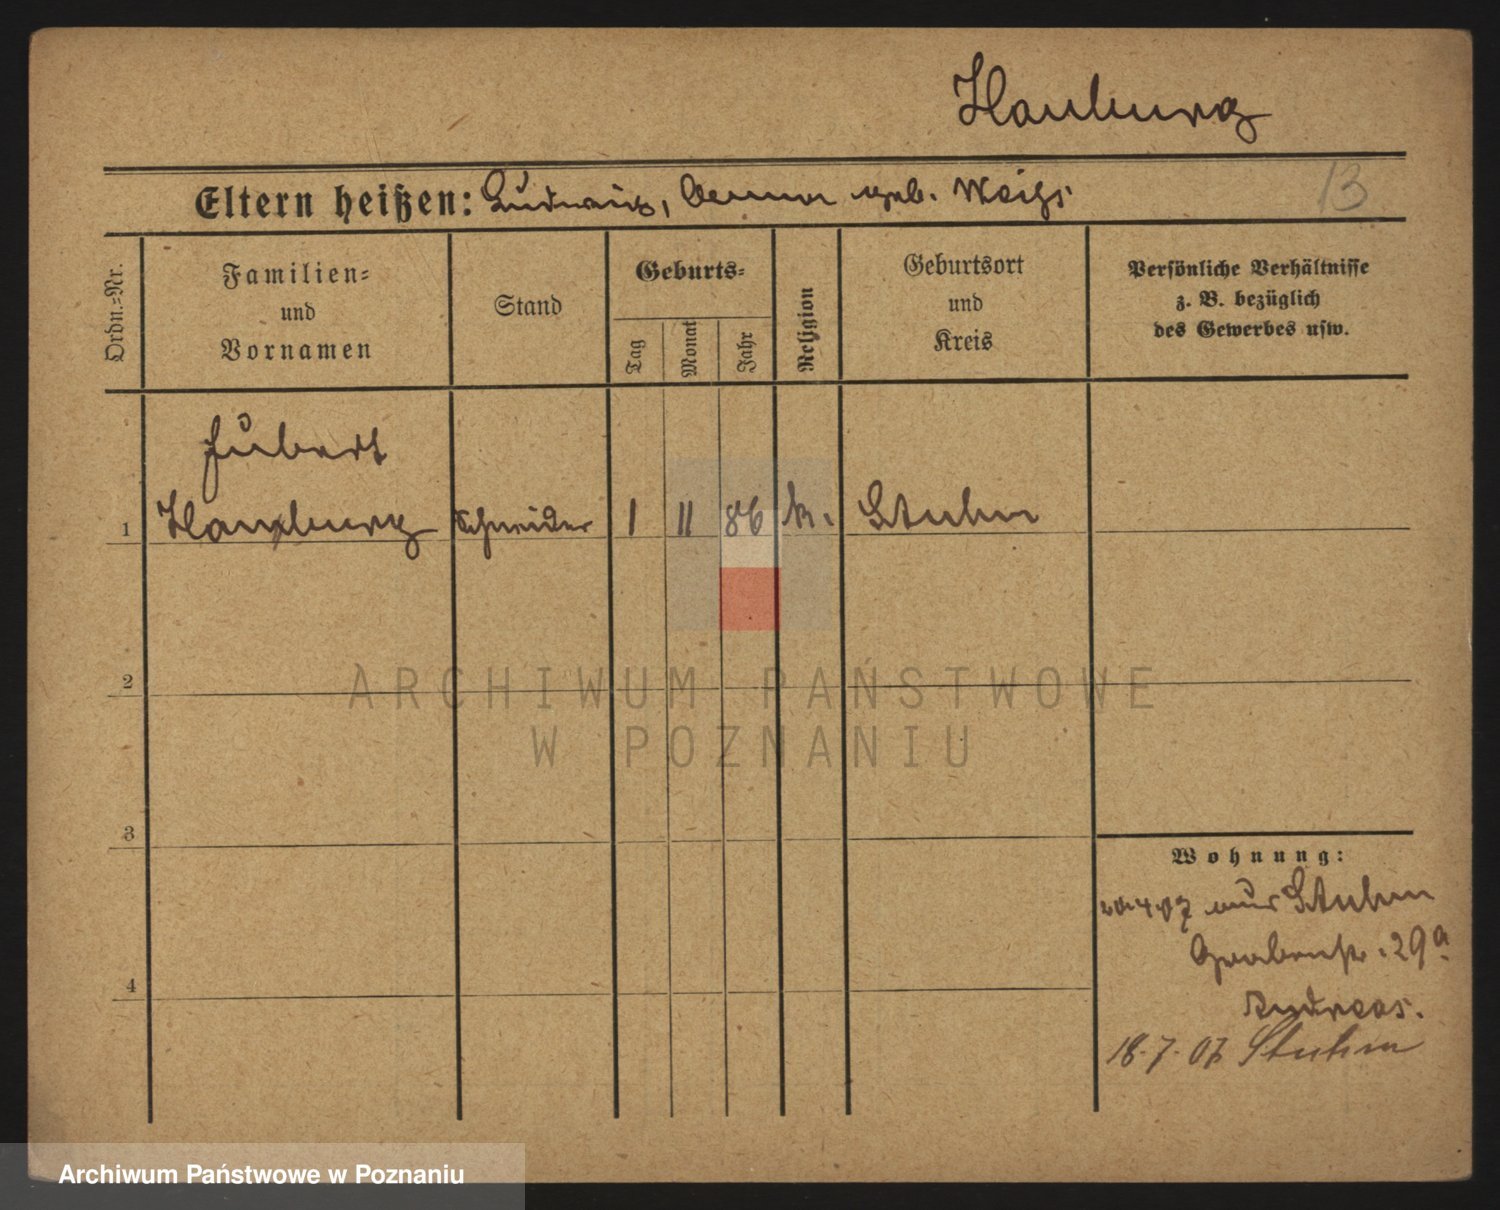 Hamburg
13
Eltern heißen: Ludwig, Anna geb. Weigs
Ordn.=Nr.
Familien=
und
Vornamen
Stand
Geburts=
Tag
Monat
Jahr
Religion
Geburtsort
und
Kreis
Persönliche Verhältnisse
z. B. bezüglich
des Gewerbes usw.
Hubert
1 Hamburg Schneider 1 11 86 k. Stuhm
2
ARCHIWUM PAŃSTWOWE
W POZNANIU
3
4
Wohnung:
20.4.07 aus Stuhm
Grabenstr. 29a
Andreas.
18.7.07 Stuhm
Archiwum Państwowe w Poznaniu